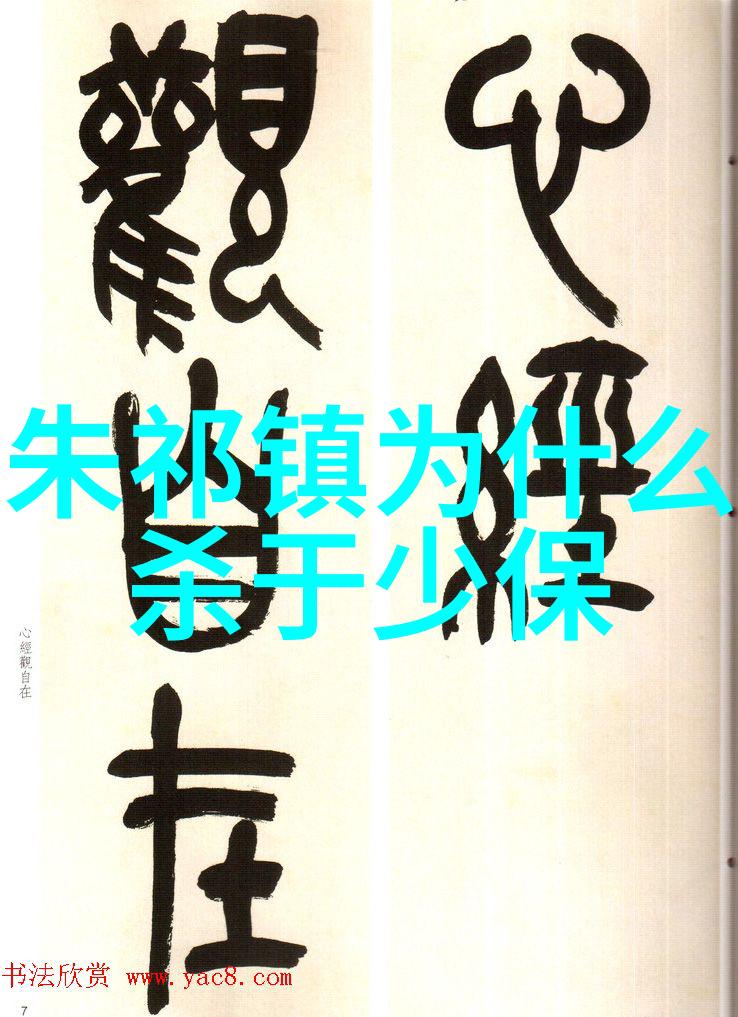 心經
觀自在
朱祁镇为什么
杀于少保
心經觀自在
书法欣赏 www.yac8.com
7